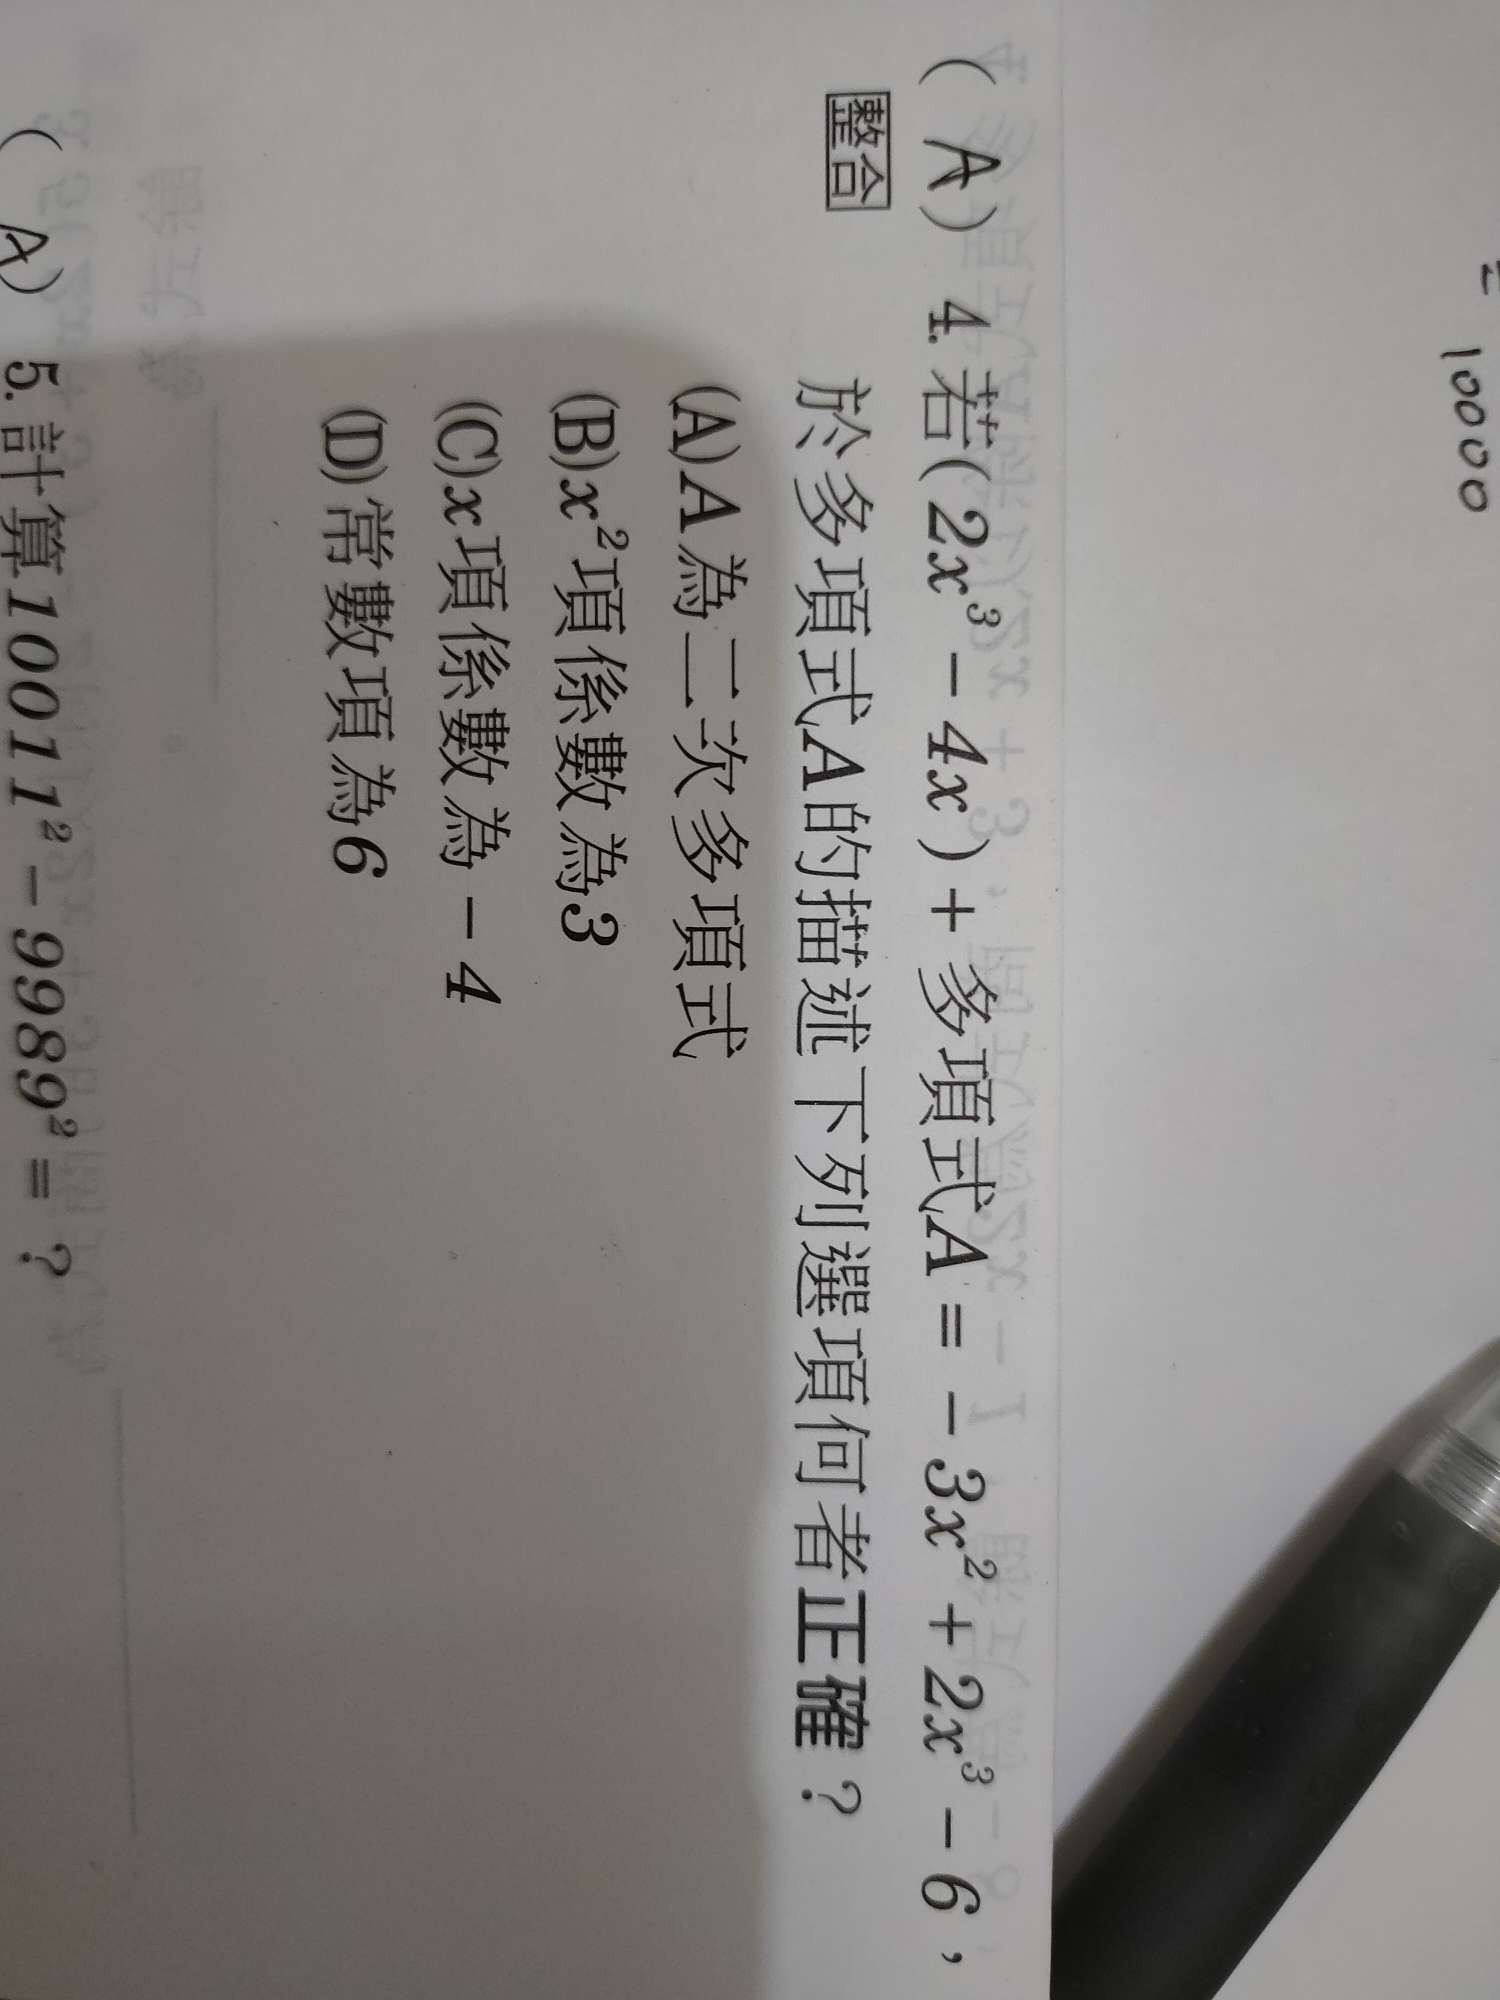 = 10000
( A ) 4. 若(2x³－4x)＋多項式A＝－3x²＋2x³－6，
整合
於多項式A的描述下列選項何者正確？
(A)A為二次多項式
(B)x²項係數為3
(C)x項係數為－4
(D)常數項為6
( A ) 5. 計算10011²－9989²＝？